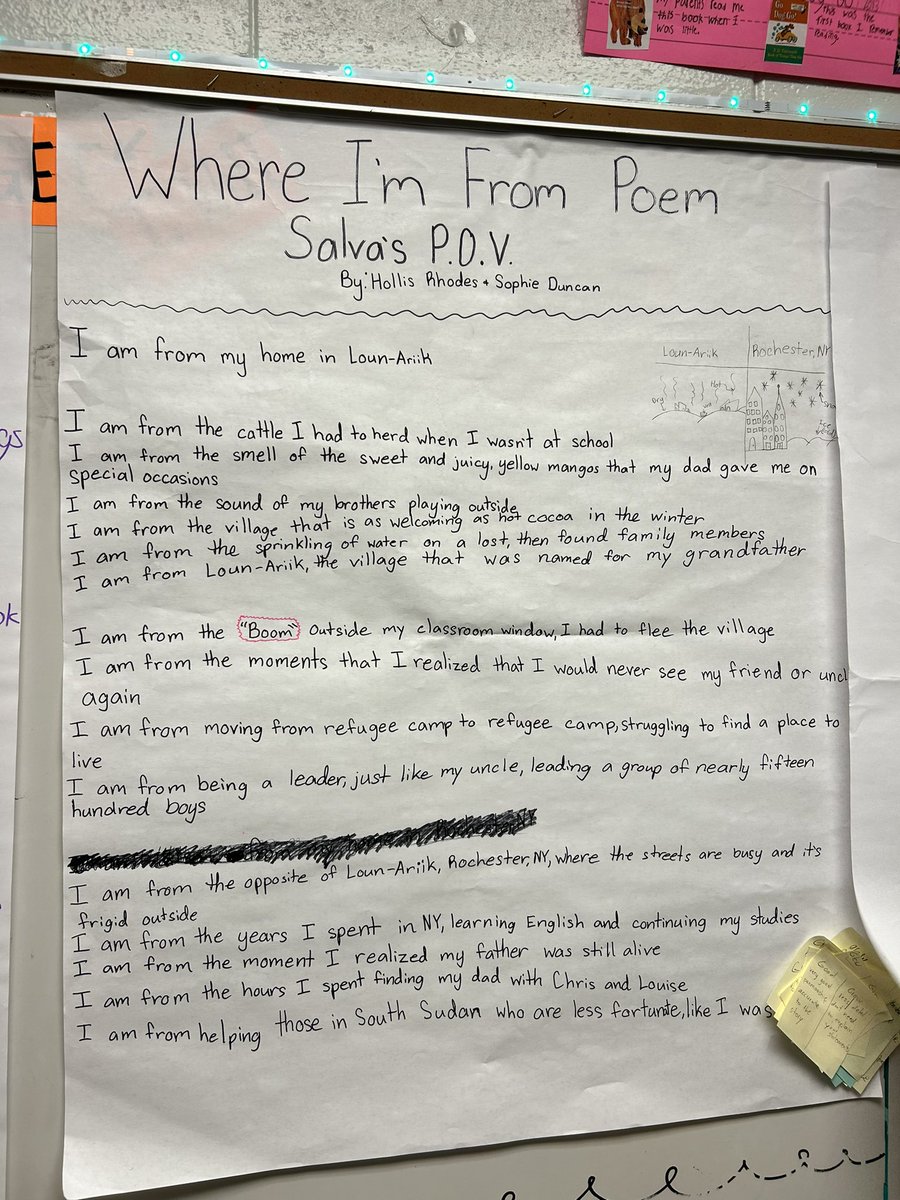 my parents read me
this book when I
was little.
Go
Dog. Go!
this was the
first book I remember
reading.
E
Where I'm From Poem
Salva's P.O.V.
By: Hollis Rhodes + Sophie Duncan
I am from my home in Loun-Ariik
Loun-Ariik Rochester, NY
Hot
Dry
I am from the cattle I had to herd when I wasn't at school
I am from the smell of the sweet and juicy, yellow mangos that my dad gave me on
special occasions
I am from the sound of my brothers playing outside
I am from the village that is as welcoming as hot cocoa in the winter
I am from the sprinkling of water on a lost, then found family members
I am from Loun-Ariik, the village that was named for my grandfather
I am from the "Boom" outside my classroom window, I had to flee the village
I am from the moments that I realized that I would never see my friend or uncl
again
I am from moving from refugee camp to refugee camp, struggling to find a place to
live
I am from being a leader, just like my uncle, leading a group of nearly fifteen
hundred boys
I am from the opposite of Loun-Ariik, Rochester, NY, where the streets are busy and it's
frigid outside
I am from the years I spent in NY, learning English and continuing my studies
I am from the moment I realized my father was still alive
I am from the hours I spent finding my dad with Chris and Louise
I am from helping those in South Sudan who are less fortunate, like I was